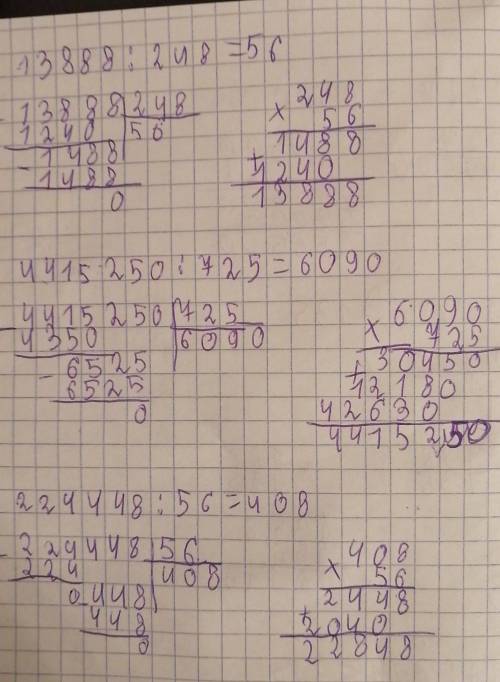 13888 : 248 = 56
- 13888 | 248
1240 | 56
- 1488
1488
0
248
× 56
1488
+ 1240
13888
4415250 : 725 = 6090
- 4415250 | 725
4350 | 6090
- 6525
6525
0
6090
× 725
30450
+ 12180
42630
4415250
224448 : 56 = 408
- 224448 | 56
224 | 408
0448
448
0
408
× 56
2448
+ 2040
22848